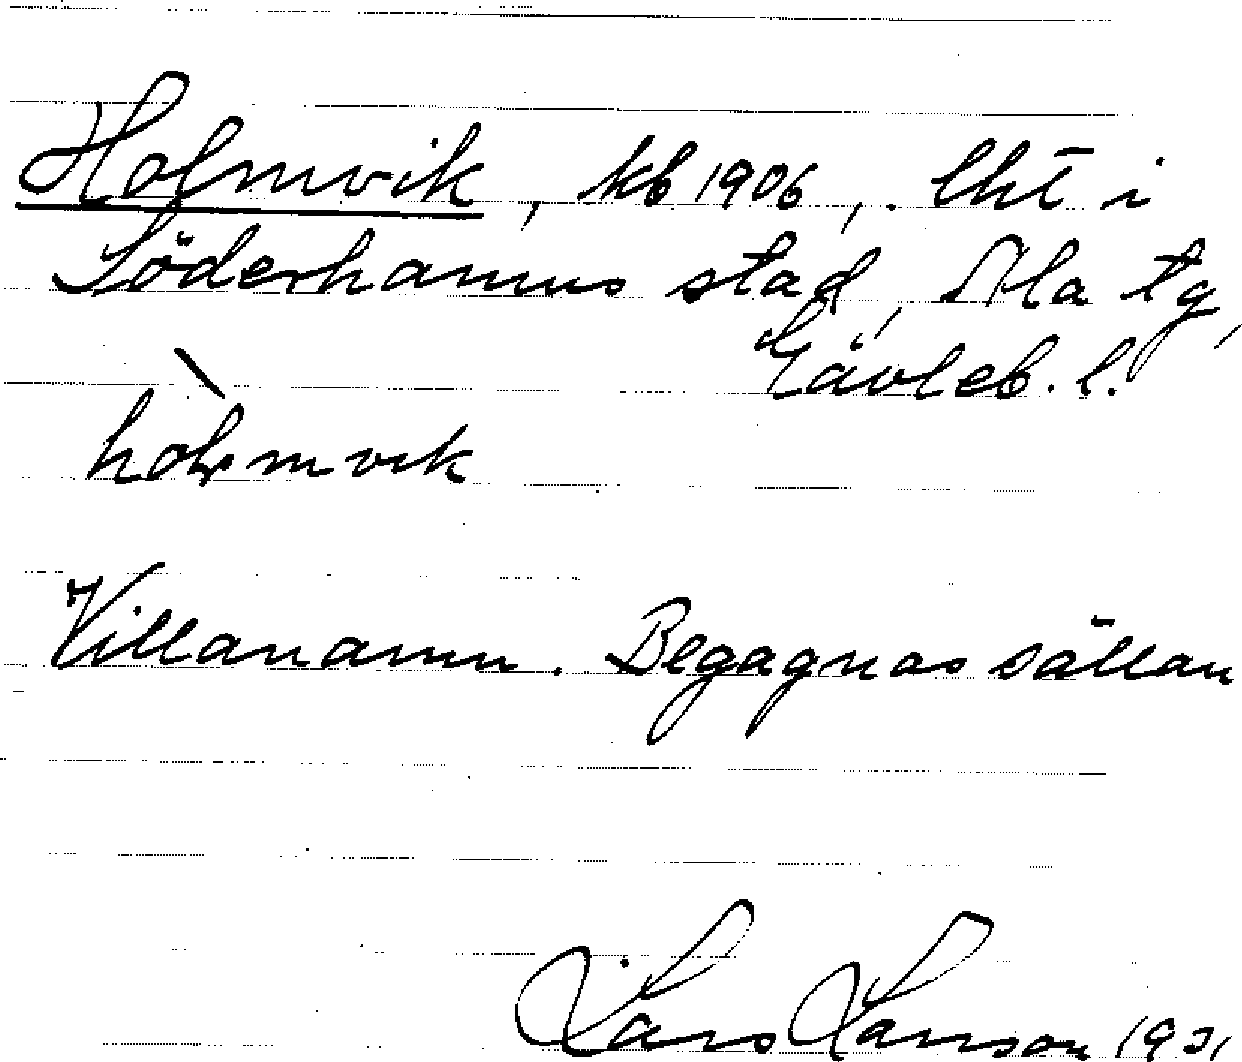 Holmvik, kb 1906, lht i
Söderhamns stad, Ala tg,
Gävleb. l.
hòlmvik
Villanamn. Begagnas sällan
Lars Larsson 1931